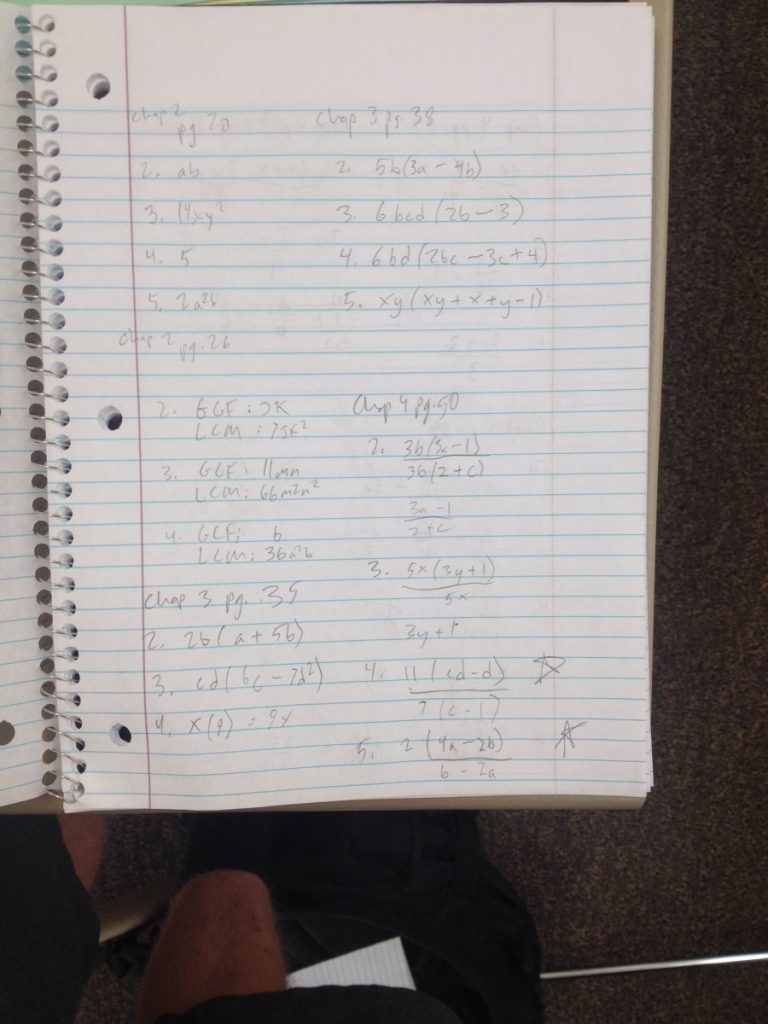 chap 2
pg 20
2. ab
3. 14xy²
4. 5
5. 2a²b
chap 2
pg. 26
2. GCF: JK
LCM: 75K²
3. GCF: 11mn
LCM: 66m²n²
4. GCF: b
LCM: 36a²b
chap 3 pg. 35
2. 2b(a + 5b)
3. cd(6c - 7d²)
4. x(9) = 9x
chap 3 pg. 38
2. 5b(3a - 4b)
3. 6bcd(2b - 3)
4. 6bd(2bc - 3c + 4)
5. xy(xy + x + y - 1)
Chap 4 pg. 50
2. 3b(3a - 1)
3b(2 + c)
3a - 1
2 + c
3. 5x(3y + 1)
5x
3y + 1
4. 11(cd - d)
7(c - 1)
5. 2(4a - 2b)
b - 2a